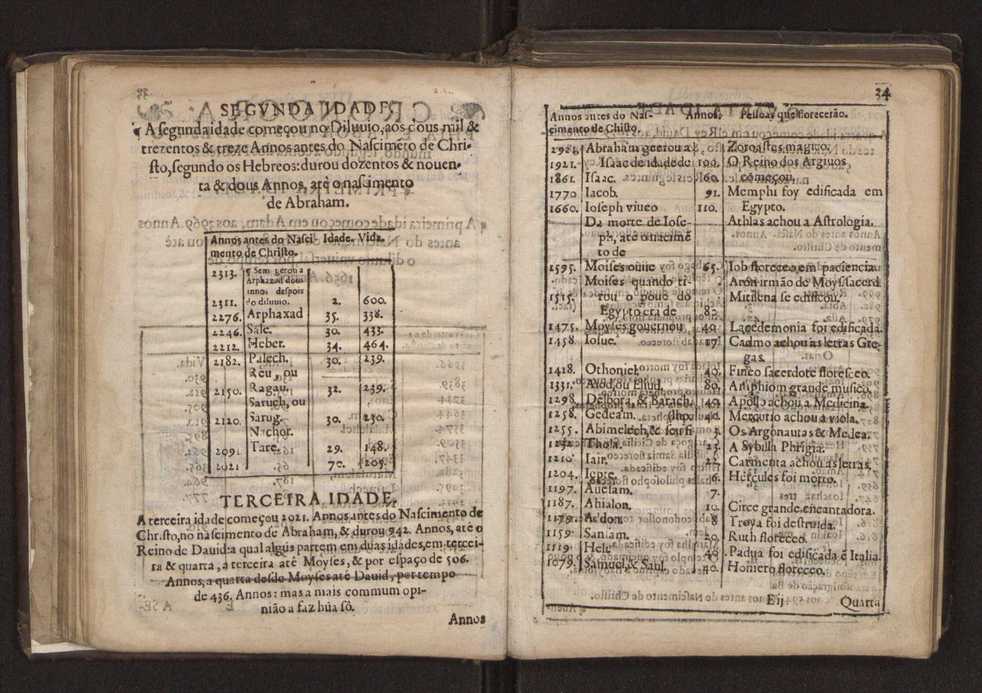 SEGVNDA IDADE.
¶ A segunda idade começou no Diluuio, aos dous mil &
trezentos & treze Annos antes do Nascimẽto de Chri-
sto, segundo os Hebreos: durou dozentos & nouen-
ta & dous Annos, atè o nascimento
de Abraham.
Annos antes do Nasci- Idade. Vida.
mento de Christo.
2313. ¶ Sem gerou a
Arphaxad dous
annos despois
2311. do diluuio. 2. 600.
2276. Arphaxad 35. 338.
2246. Sale. 30. 433.
2212. Heber. 34. 464.
2182. Palech. 30. 239.
Reu, ou
2150. Ragau. 32. 239.
Saruch, ou
2120. Sarug. 30. 230.
Nachor.
2091. Tare. 29. 148.
2021 70. 205.
TERCEIRA IDADE.
A terceira idade começou 2021. Annos antes do Nascimento de
Christo, no nascimento de Abraham, & durou 942. Annos, atè o
Reino de Dauid: a qual algũs partem em duas idades, em tercei-
ra & quarta, a terceira atè Moyses, & por espaço de 506.
Annos, a quarta desde Moyses atè Dauid, por tempo
de 436. Annos: mas a mais commum opi-
nião a faz hũa sò.
Annos
34
Annos antes do Nas- Annos. Pessoas que florecerão.
cimento de Chisto.
2921. Abraham geerou a Zoroastes magico.
1921. Isaac de idade de 100. O Reino dos Argiuos
1861. Isaac. 60. começou.
1770 Iacob. 91. Memphi foy edificada em
1660. Ioseph viueo 110. Egypto.
Da morte de Iose- Athlas achou a Astrologia.
ph, atè o nacimẽ
to de
1595. Moises ouue 65. Iob floreceo em paciencia
Moises quando ti- Aron irmão de Moysi sacerd
1515. rou o pouo do Matilena se edificou.
Egypto era de 80.
1475. Moyses gouernou 40. Lacedemonia foi edificada.
1458. Iosue. 17. Cadmo achou as letras Gre-
gas.
1418. Othoniel. 40. Fineo sacerdote floresceo.
1331. Aiod ou Eliud. 80. Amphiom grande musico.
1298. Delbora, & Barach. 40. Apollo achou a Medicina.
1258. Gedeam. 40. Mercurio achou a viola.
1255. Abimelech & seu fi 3. Os Argonautas & Medea.
1232. Thola. 23. A Sybilla Phrigia.
1210. Iair. Carmenta achou as letras.
1204. Iepte. 6. Hercules foi morto.
1197. Auesam. 7.
1187. Ahialon. 10. Circe grande encantadora.
1179. Abdon. 8 Troya foi destruida.
1159. Sansam. 20. Ruth floreceo.
1119. Hele 40. Padua foi edificada ẽ Italia.
1079. Samuel & Saul. 40. Homero floreceo.
E ij Quarta